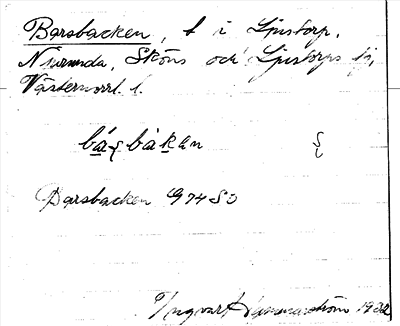 Barsbacken, t i Ljustorp,
Njurunda, Sköns och Ljustorps tg,
Västernorrl. l.
bá-ʂbàkan
Barsbacken G74S0
Yngvar Hammarström 1932